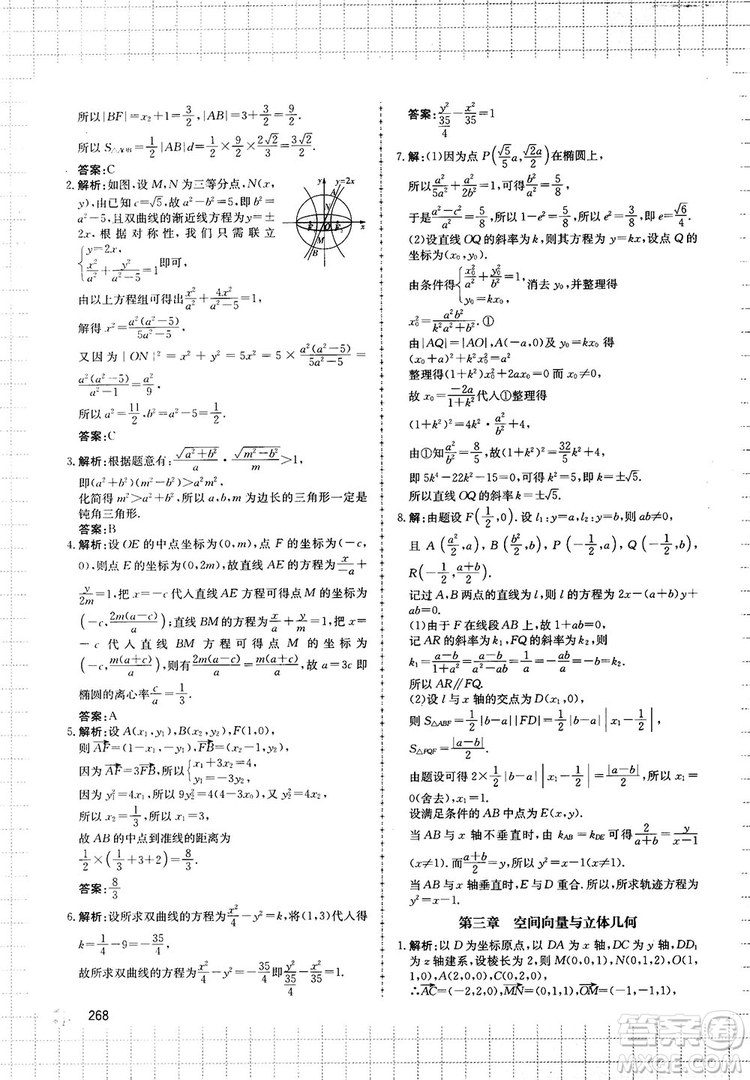 所以|BF|=x₂+1=3/2,|AB|=3+3/2=9/2.
所以 S△AOB=1/2|AB|d=1/2×9/2×2√2/3=3√2/2.
答案:C
2.解析:如图,设 M,N 为三等分点,N(x,
y),由已知 c=√5,故 a²-b²=5,a²
>5,且双曲线的渐近线方程为 y=±
2x,根据对称性,我们只需联立
{y=2x,
x²/a²+y²/(a²-5)=1 即可,
由以上方程组可得出 x²/a²+4x²/(a²-5)=1,
解得 x²=a²(a²-5)/(5a²-5).
又因为|ON|²=x²+y²=5x²=5×a²(a²-5)/(5a²-5)=
a²(a²-5)/(a²-1)=a²/9.
所以 a²=11/2,b²=a²-5=1/2.
答案:C
3.解析:根据题意有:√(a²+b²)/a·√(m²-b²)/m>1,
即(a²+b²)(m²-b²)>a²m²,
化简得 m²>a²+b²,所以以 a,b,m 为边长的三角形一定是
钝角三角形.
答案:B
4.解析:设 OE 的中点坐标为(0,m),点 F 的坐标为(-c,
0),则点 E 的坐标为(0,2m),故直线 AE 的方程为x/a+
y/2m=1,把 x=-c 代入直线 AE 方程可得 M 的坐标为
(-c,2m(a+c)/a);直线 BM 方程为-x/a+y/m=1,把 x
=-c 代入直线 BM 方程可得 M 的坐标为
(-c,m(a-c)/a),则有2m(a-c)/a=m(a+c)/a,故 a=3c 即
椭圆的离心率c/a=1/3.
答案:A
5.解析:设 A(x₁,y₁),B(x₂,y₂),F(1,0),
则AF=(1-x₁,-y₁),FB=(x₂-1,y₂),
因为AF=3FB,所以{x₁=4-3x₂,
-y₁=3y₂,
因为 y₁²=4x₁,所以 9y₂²=4(4-3x₂),又 y₂²=4x₂,
所以 x₂=1/3,所以 x₁=3,
故 AB 的中点到准线的距离为
1/2×(1/3+3+2)=8/3.
答案:8/3
6.解析:设所求双曲线的方程为x²/4-y²=k,将(1,3)代入得
k=1/4-9=-35/4,
故所求双曲线方程为x²/4-y²=-35/4即y²/(35/4)-x²/35=1.
答案:y²/(35/4)-x²/35=1
7.解:(1)因为点 P(√5/5a,√2/2a)在椭圆上,
所以a²/5a²+a²/2b²=1,可得b²/a²=5/8,
于是(a²-c²)/a²=5/8,所以 1-e²=5/8,所以 e=√6/4.
(2)设直线 OQ 的斜率为 k,则其方程为 y=kx,设点 Q 的
坐标为(x₀,y₀).
由条件得{x₀²/a²+y₀²/b²=1,
y₀=kx₀, 消去 y₀,并整理得
x₀²=a²b²/(k²a²+b²).①
由|AQ|=|AO|,A(-a,0)及 y₀=kx₀,得
(x₀+a)²+k²x₀²=a²,
整理得(1+k²)x₀²+2ax₀=0,而 x₀≠0,
故 x₀=-2a/(1+k²),代入①整理得
(1+k²)²=4k²·a²/b²+4,
由①知a²/b²=8/5,故(1+k²)²=32/5k²+4,
即 5k⁴-22k²-15=0,可得 k²=5,
所以直线 OQ 的斜率为 k=±√5.
8.解:由题设 F(1/2,0).设 l₁:y=a,l₂:y=b,则 ab≠0,
且 A(a²/2,a),B(b²/2,b),P(-1/2,a),Q(-1/2,b),
R(-1/2,(a+b)/2).
记过 A,B 两点的直线为 l,则 l 的方程为 2x-(a+b)y+
ab=0.
(1)由于 F 在线段 AB 上,故 1+ab=0.
记 AR 的斜率为 k₁,FQ 的斜率为 k₂,则
k₁=(a-b)/(1+a²)=(a-b)/(a²-ab)=1/a=-ab/a=-b=k₂.
所以 AR∥FQ.
(2)设 l 与 x 轴的交点为 D(x₁,0),
则 S△ABF=1/2|b-a||FD|=1/2|b-a||x₁-1/2|,
S△PQF=|a-b|/2.
由题设可得 2×1/2|b-a||x₁-1/2|=|a-b|/2,所以 x₁=
0(舍去),x₁=1.
设满足条件的 AB 的中点为 E(x,y).
当 AB 与 x 轴不垂直时,由 kAB=kDE可得2/(a+b)=y/(x-1)
(x≠1).而(a+b)/2=y,所以 y²=x-1(x≠1).
当 AB 与 x 轴垂直时,E 与 D 重合.所以,所求轨迹方程为
y²=x-1.
第三章 空间向量与立体几何
1.解析:以 D 为坐标原点,以 DA 为 x 轴,DC 为 y 轴,DD₁
为 z 轴建系,设棱长为 2,则 M(0,0,1),N(0,1,2),O(1,
1,0),A(2,0,0),C(0,2,0),
∴AC=(-2,2,0),MN=(0,1,1),OM=(-1,-1,1),
268
答案圈
MXQE.COM